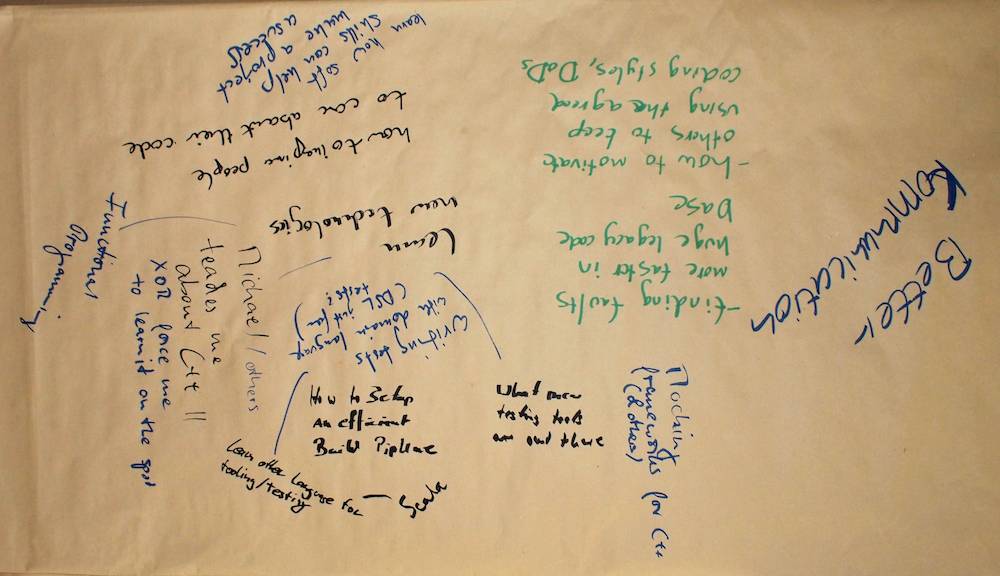 learn how
soft
skills can help
make a project
a success
how to inspire people
to care about their code
learn
new technologies
- how to motivate
others to keep
using the agreed
coding styles, DoDs
- finding faults
more faster in
huge legacy code
base
Better
Kommunication
Functional
Programming
Michael/others
teaches me
about C++ 11
XOR force me
to learn it on the spot
Writing tests
with domain language
(DSL just for
tests?)
How to Setup
an efficient
Build Pipeline
What new
testing tools
are out there
Mocking
frameworks for C++
(& others)
Learn other language for
tooling/testing
— Scala